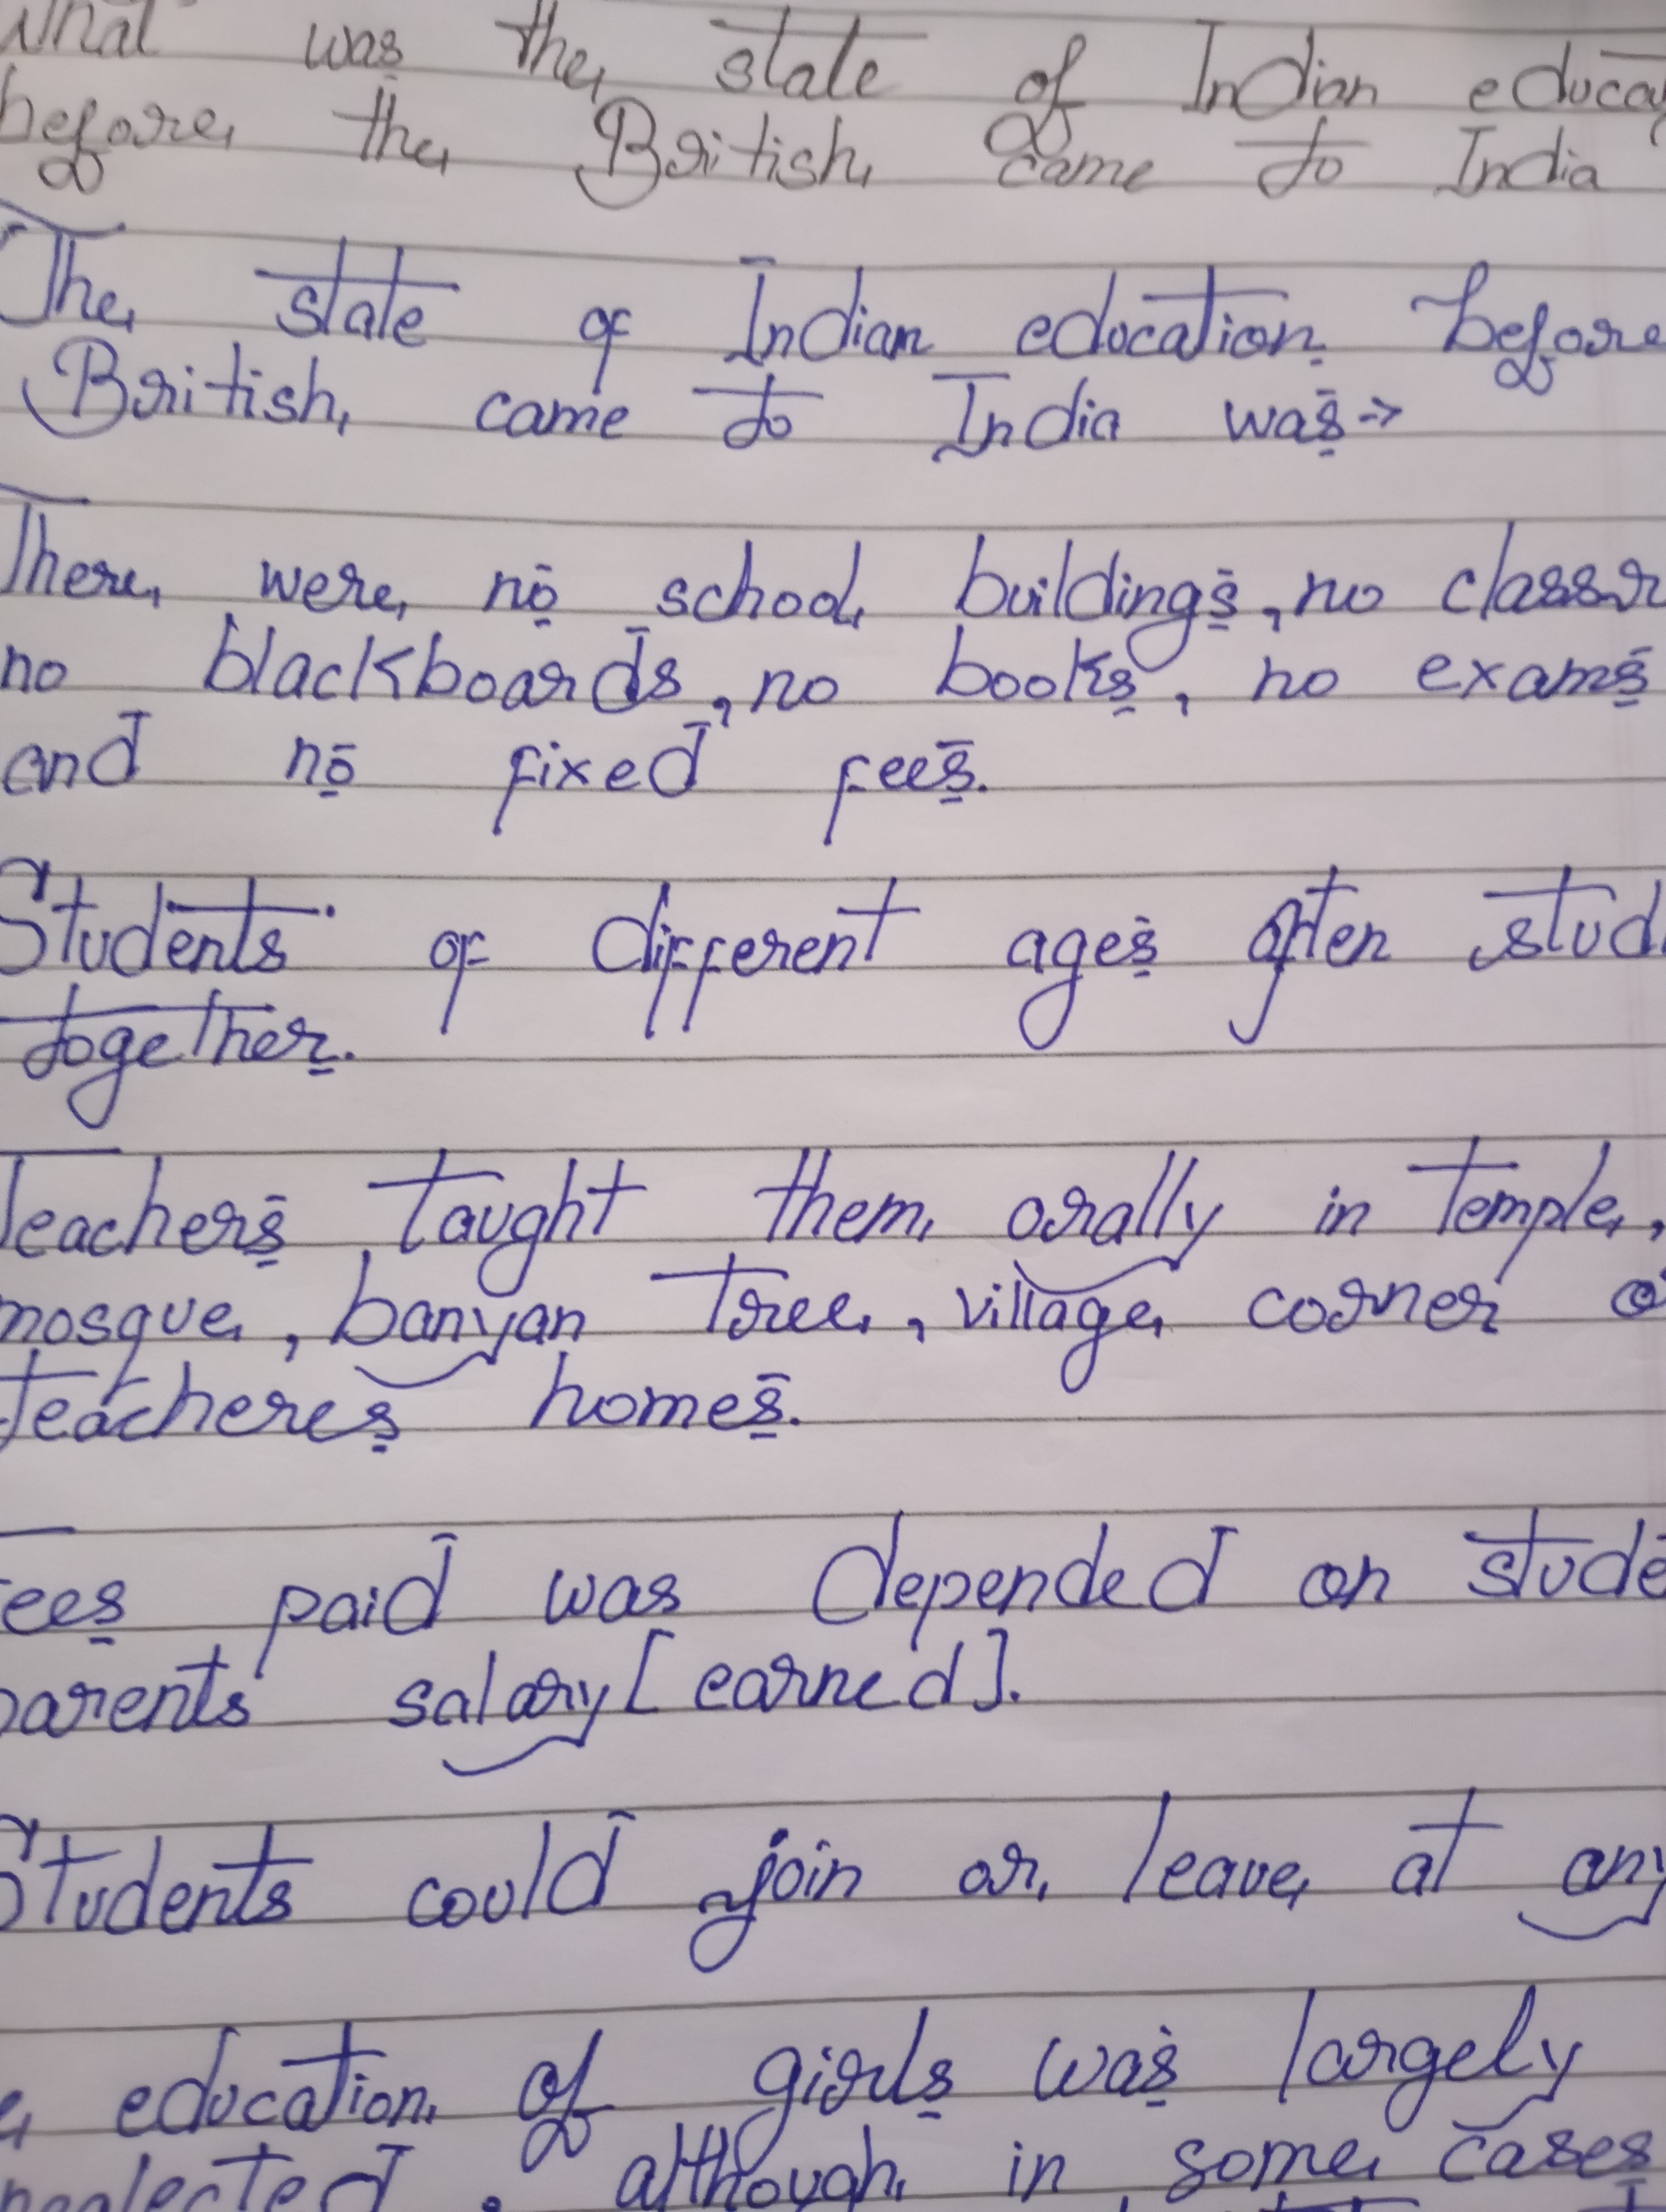 What was the state of Indian educa
before the British came to India
The state of Indian education before
British came to India was→
There were no school buildings, no classr
no blackboards, no books, no exams
and no fixed fees.
Students of different ages often stud
together.
Teachers taught them orally in temple,
mosque, banyan tree, village corner o
teacheres homes.
Fees paid was depended on stude
parents salary [earned].
Students could join or leave at any
education of girls was largely
neglected, although in some cases